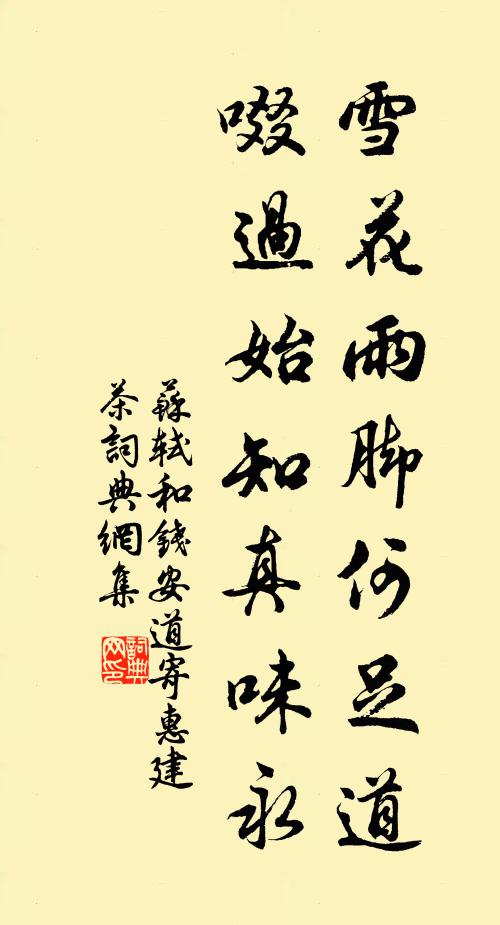 雪花雨脚何足道
啜過始知真味永
蘇軾和錢安道寄惠建
茶詞典網集
詞典网印